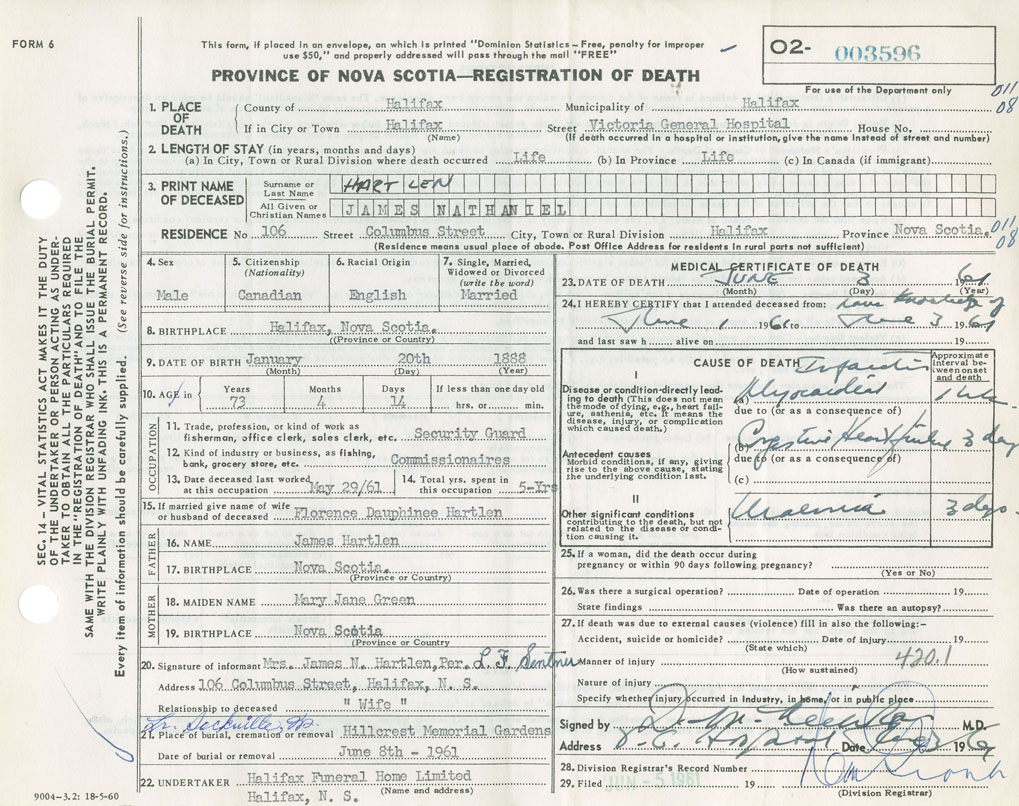 FORM 6
This form, if placed in an envelope, on which is printed "Dominion Statistics—Free, penalty for improper
use $50," and properly addressed will pass through the mail "FREE"
O2- 003596
PROVINCE OF NOVA SCOTIA—REGISTRATION OF DEATH
For use of the Department only
011
08
1. PLACE OF DEATH
County of Halifax Municipality of Halifax
If in City or Town Halifax Street Victoria General Hospital House No.
(Name) (If death occurred in a hospital or institution, give the name instead of street and number)
2. LENGTH OF STAY (in years, months and days)
(a) In City, Town or Rural Division where death occurred Life (b) In Province Life (c) In Canada (if immigrant)
3. PRINT NAME OF DECEASED
Surname or Last Name HARTLEN
All Given or Christian Names JAMES NATHANIEL
RESIDENCE No 106 Street Columbus Street City, Town or Rural Division Halifax Province Nova Scotia.
011
08
(Residence means usual place of abode. Post Office Address for residents in rural parts not sufficient)
4. Sex
Male
5. Citizenship
(Nationality)
Canadian
6. Racial Origin
English
7. Single, Married,
Widowed or Divorced
(write the word)
Married
8. BIRTHPLACE Halifax, Nova Scotia.
((Province or Country)
9. DATE OF BIRTH January 20th 1888
(Month) (Day) (Year)
10. AGE in
Years Months Days If less than one day old
73 4 14 hrs. or min.
OCCUPATION
11. Trade, profession, or kind of work as
fisherman, office clerk, sales clerk, etc. Security Guard
12. Kind of industry or business, as fishing,
bank, grocery store, etc. Commissionaires
13. Date deceased last worked
at this occupation May 29/61
14. Total yrs. spent in
this occupation 5-Yrs
15. If married give name of wife
or husband of deceased Florence Dauphinee Hartlen
FATHER
16. NAME James Hartlen
17. BIRTHPLACE Nova Scotia.
(Province or Country)
MOTHER
18. MAIDEN NAME Mary Jane Green
19. BIRTHPLACE Nova Scotia
(Province or Country)
20. Signature of informant Mrs. James N. Hartlen, Per. L. F. Sentner
Address 106 Columbus Street, Halifax, N. S.
Relationship to deceased " Wife "
21. Place of burial, cremation or removal Hillcrest Memorial Gardens
Date of burial or removal June 8th - 1961
22. UNDERTAKER Halifax Funeral Home Limited
(Name and address)
Halifax, N. S.
MEDICAL CERTIFICATE OF DEATH
23. DATE OF DEATH JUNE 3 1961
(Month) (Day) (Year)
24. I HEREBY CERTIFY that I attended deceased from: have knowledge of
June 1 1961 to June 3 1961
and last saw h alive on 19
CAUSE OF DEATH
Approximate
interval between onset
and death
I
Disease or condition directly leading
to death (This does not mean
the mode of dying, e.g., heart failure,
asthenia, etc. It means the
disease, injury, or complication
which caused death.)
(a) Myocardial Infarction
due to (or as a consequence of)
Antecedent causes
Morbid conditions, if any, giving
rise to the above cause, stating
the underlying condition last.
(b) Congestive Heart Failure 3 days
due to (or as a consequence of)
(c)
II
Other significant conditions
contributing to the death, but not
related to the disease or condition
causing it.
Uraemia 3 days.
25. If a woman, did the death occur during
pregnancy or within 90 days following pregnancy?
(Yes or No)
26. Was there a surgical operation? Date of operation 19
State findings Was there an autopsy?
27. If death was due to external causes (violence) fill in also the following:-
Accident, suicide or homicide? Date of injury 19
(State which)
420.1
Manner of injury
(How sustained)
Nature of injury
Specify whether injury occurred in industry, in home, or in public place
Signed by M.D.
Address V. G. Hospital Date 1961
28. Division Registrar's Record Number
29. Filed JUN -5 1961 19
(Division Registrar)
SEC. 14 — VITAL STATISTICS ACT MAKES IT THE DUTY
OF THE UNDERTAKER OR PERSON ACTING AS UNDERTAKER
TO OBTAIN ALL THE PARTICULARS REQUIRED
IN THE "REGISTRATION OF DEATH" AND TO FILE THE
SAME WITH THE DIVISION REGISTRAR WHO SHALL ISSUE THE BURIAL PERMIT.
WRITE PLAINLY WITH UNFADING INK. THIS IS A PERMANENT RECORD.
Every item of information should be carefully supplied. (See reverse side for instructions.)
9004-3.2: 18-5-60